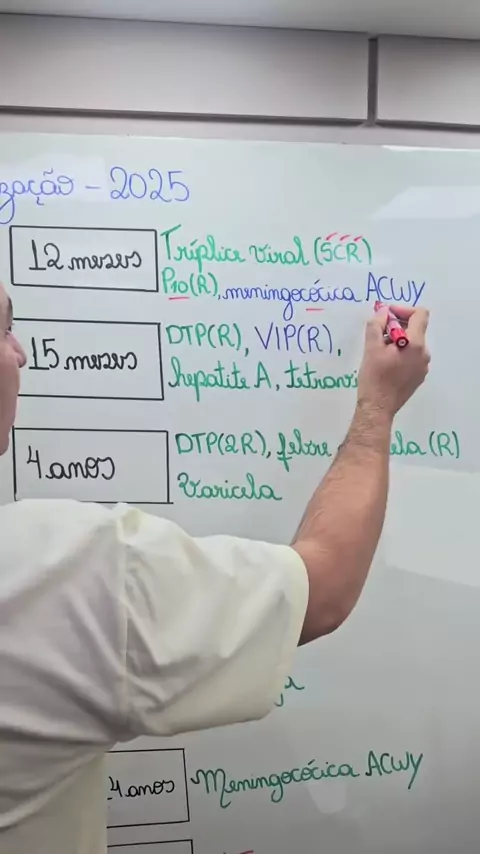 zação - 2025
12 meses
Tríplice viral (SCR)
P10(R), meningocócica ACWY
15 meses
DTP(R), VIP(R),
hepatite A,
4 anos
DTP(2R), febre (R)
Varicela
4 anos
Meningocócica ACWY